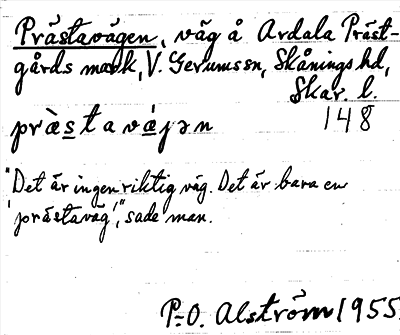 Prästavägen, väg å Ardala Präst-
gårds mark, V. Gerums sn, Skånings hd,
Skar. l.
pràs̲t a vá̲jən 148
"Det är ingen riktig väg. Det är bara en
'prästaväg'," sade man.
P-O. Alström 1955.